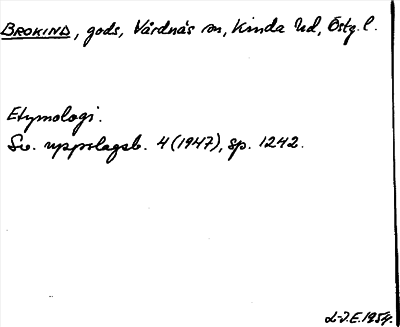 BROKIND, gods, Vårdnäs sn, Kinda hd, Östg.l.
Etymologi.
Sv. uppslagsb. 4 (1947), sp. 1242.
L-J.E.1954.